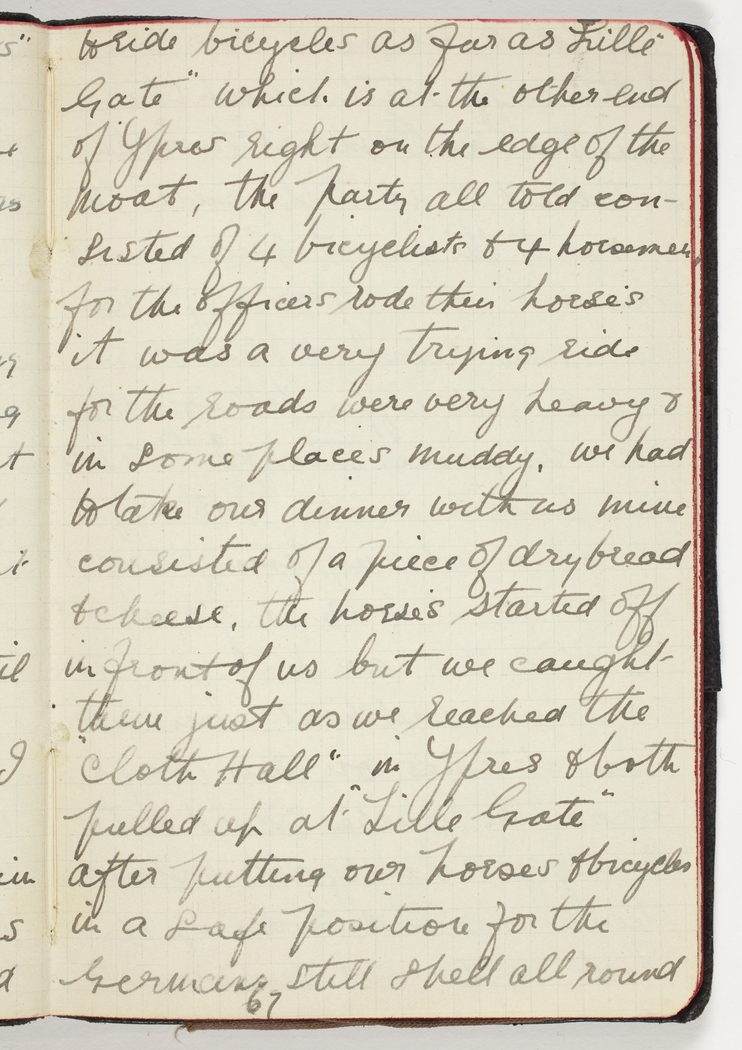 to ride bicycles as far as "Lille
Gate" which is at the other end
of Ypres right on the edge of the
moat, the party all told con-
sisted of 4 bicyclists & 4 horsemen,
for the officers rode their horses
it was a very trying ride
for the roads were very heavy &
in some places muddy. we had
to take our dinner with us mine
consisted of a piece of dry bread
& cheese, the horses started off
in front of us but we caught
them just as we reached the
"Cloth Hall" in Ypres & both
pulled up at "Lille Gate"
after putting our horses & bicycles
in a safe position for the
Germans still shell all round
67